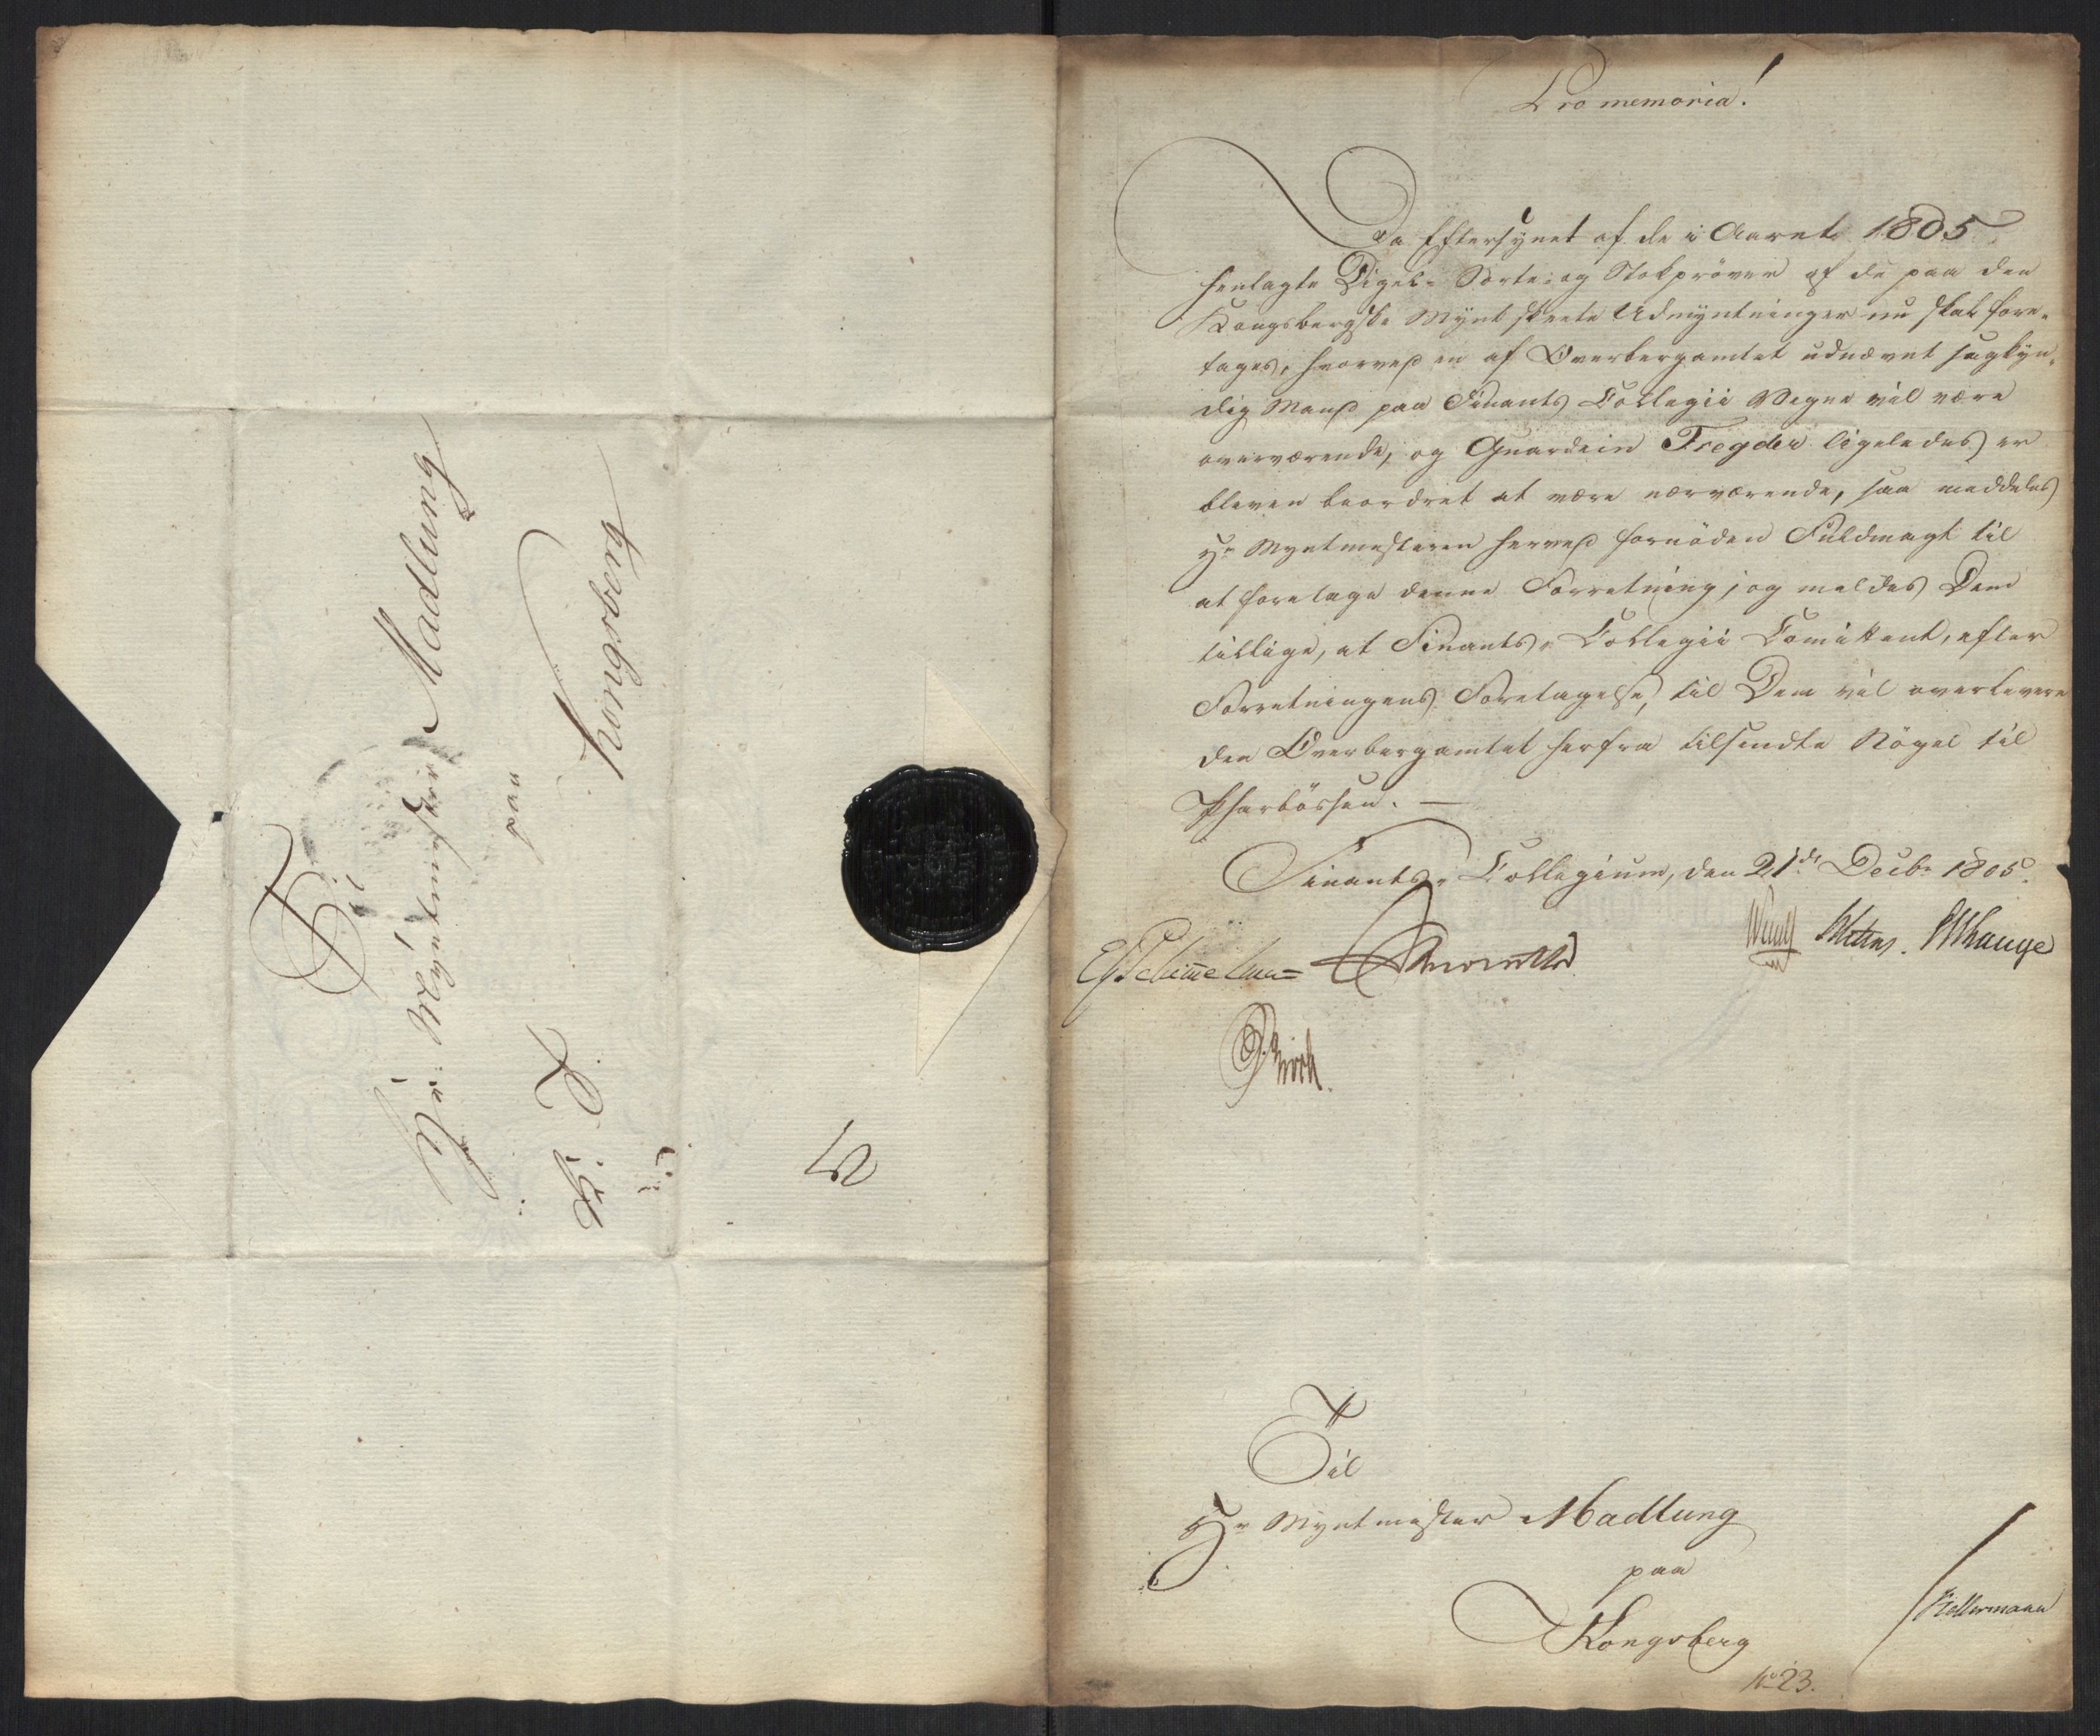 Til
Hr. Myntmester Madlung
paa
Kongsberg
K. T.
Pro memoria!
Da Eftersynet af de i Aaret 1805
henlagte Digel- Sorte- og Stokpröver af de paa den
Kongsbergske Mynt skeete Udmyntninger nu skal fore-
tages, hvorved en af Overbergamtet udnævnt sagkyn-
dig Mand paa Finants Collegii Vegne vil være
overværende, og Guardein Tregder ligeledes er
bleven beordret at være nærværende, saa meddeles
Hr Myntmesteren herved fornöden Fuldmagt til
at foretage denne Forretning; og meldes Dem
tillige, at Finants-Collegii Comittent, efter
Forretningens Foretagelse, til Dem vil overlevere
den Overbergamtet herfra tilsendte Nögel til
Finants-Collegium, den 21de Decbr 1805.
Schimmelmann
Til
Hr Myntmester Madlung
paa
Kongsberg
Kellermann
No 23.